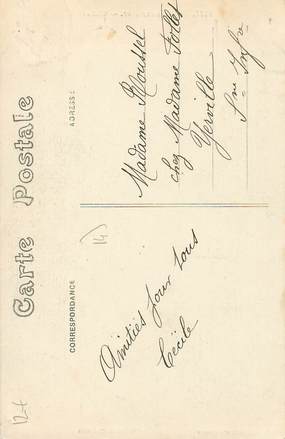 Carte Postale
CORRESPONDANCE
ADRESSE
14
Amitiés pour tous
Cécile
Madame Roussel
chez Madame Folles
Yerville
Sne Infre
12+